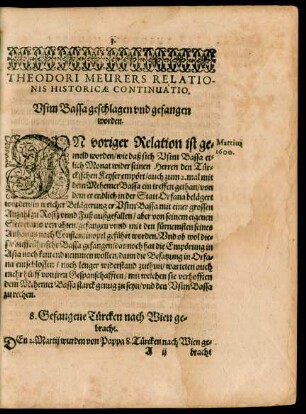 3.
THEODORI MEURERS RELATIO-
NIS HISTORICÆ CONTINUATIO.
Vsun Bassa geschlagen vnd gefangen
worden.
IN voriger Relation ist ge-
Martius
1600.
meld worden / wie daß sich Vsun Bassa et-
lich Monat wider seinen Herren den Tür-
ckischen Keyser empört / auch zum 2. mal mit
dem Mehemet Bassa ein treffen gethan / von
dem er endlich in der Statt Orfana belägert
worden / in welcher Belägerung
Vsun Bassa mit einer grossen
Anzahl zu Roß vnd Fuß außgefallen / aber von seinem eigenen
Secretario verrahten / gefangen vnnd mit 2. der fürnemsten seines
Anhangs nach Constantinopel geführt worden. Vnd ob wol die-
ser auffrührische Bassa gefangen / darnoch hat die Empörung in
Asia noch kein end nemmen wollen / dann die Besatzung in Orfa-
na entschlossen / noch lenger widerstand zuthun / warteten auch
mehr hülff von jren Gespanschafften / mit welchen sie verhofften
dem Mehemet Bassa starck genug zu seyn / vnd den Vsun Bassa
zu rechen.
8. Gefangene Türcken nach Wien ge-
bracht.
DEn 2. Martij wurden von Pappa 8. Türcken nach Wien ge-
A ij
bracht